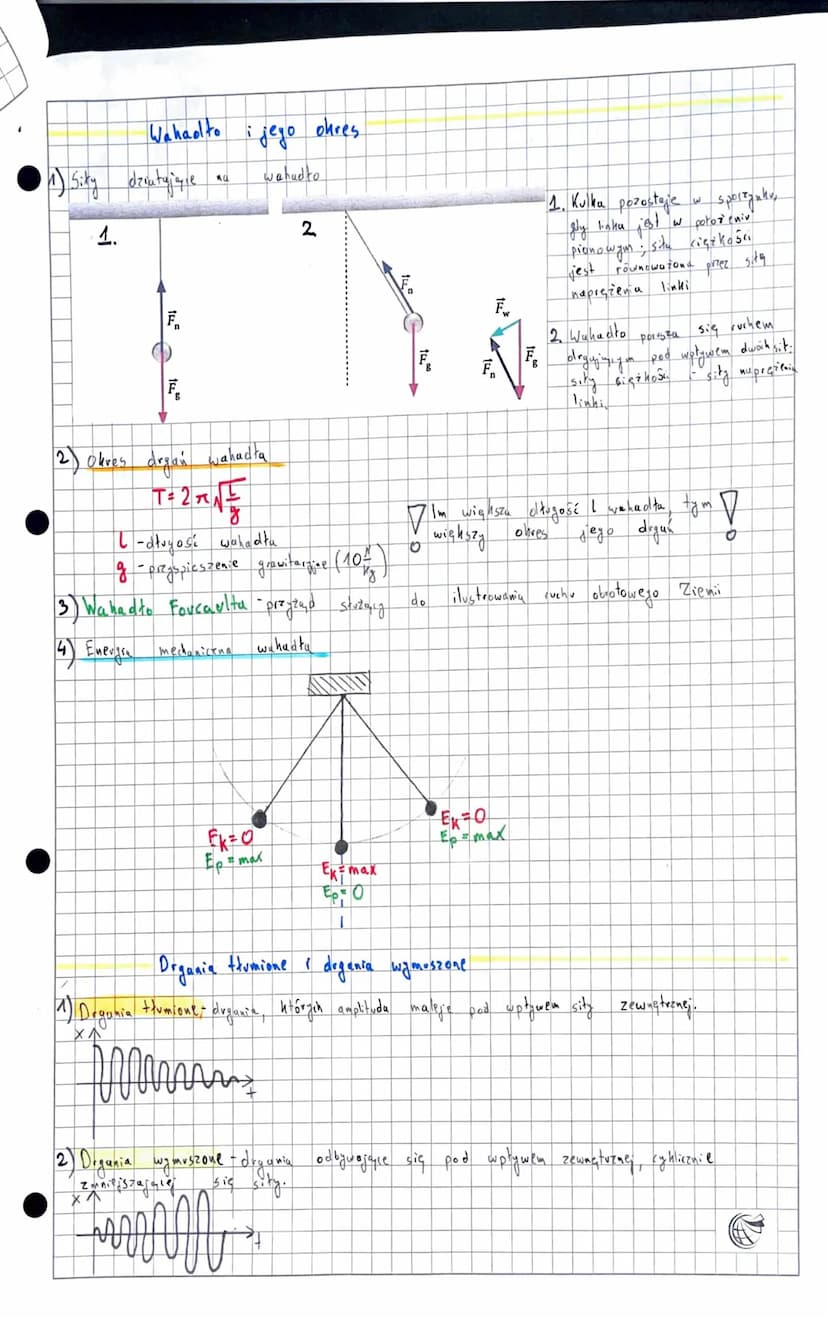 Wahadło i jego okres
1) Siły działające na wahadło
1.
F⃗n
F⃗g
2
F⃗n
F⃗g
F⃗w
F⃗n
F⃗g
1. Kulka pozostaje w spoczynku,
gdy linka jest w położeniu
pionowym; siła ciężkości
jest równoważona przez siłę
naprężenia linki
2. Wahadło porusza się ruchem
drgającym pod wpływem dwóch sił:
siły ciężkości i siły naprężenia
linki.
2) Okres drgań wahadła
T = 2π√l/g
l - długość wahadła
g - przyspieszenie grawitacyjne (10 N/kg)
! Im większa długość l wahadła, tym !
większy okres jego drgań
3) Wahadło Foucaulta - przyrząd służący do ilustrowania ruchu obrotowego Ziemii
4) Energia mechaniczna wahadła
Ek=0
Ep=max
Ek=max
Ep=0
Ek=0
Ep=max
Drgania tłumione i drgania wymuszone
1) Drgania tłumione - drgania, których amplituda maleje pod wpływem siły zewnętrznej.
x
t
2) Drgania wymuszone - drgania odbywające się pod wpływem zewnętrznej, cyklicznie
zmniejszającej się siły.
x
t